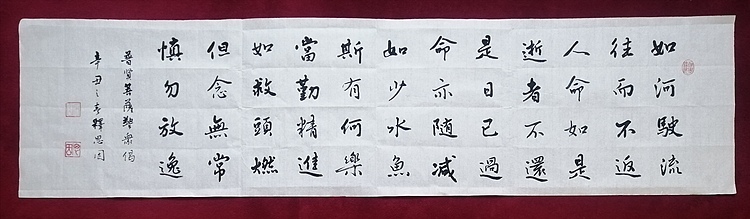 如河駛流
往而不返
人命如是
逝者不還
是日已過
命亦随减
如少水魚
斯有何樂
當勤精進
如救頭燃
但念無常
慎勿放逸
普賢菩薩警衆偈
辛丑之春釋思因